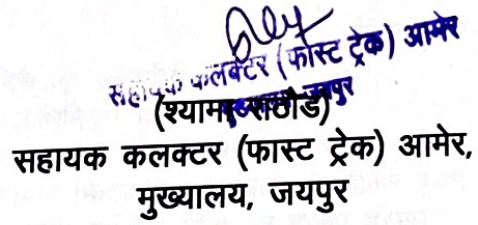 सहायक कलक्टर (फास्ट ट्रेक) आमेर
मुख्यालय जयपुर
(श्यामा राठौड)
सहायक कलक्टर (फास्ट ट्रेक) आमेर,
मुख्यालय, जयपुर